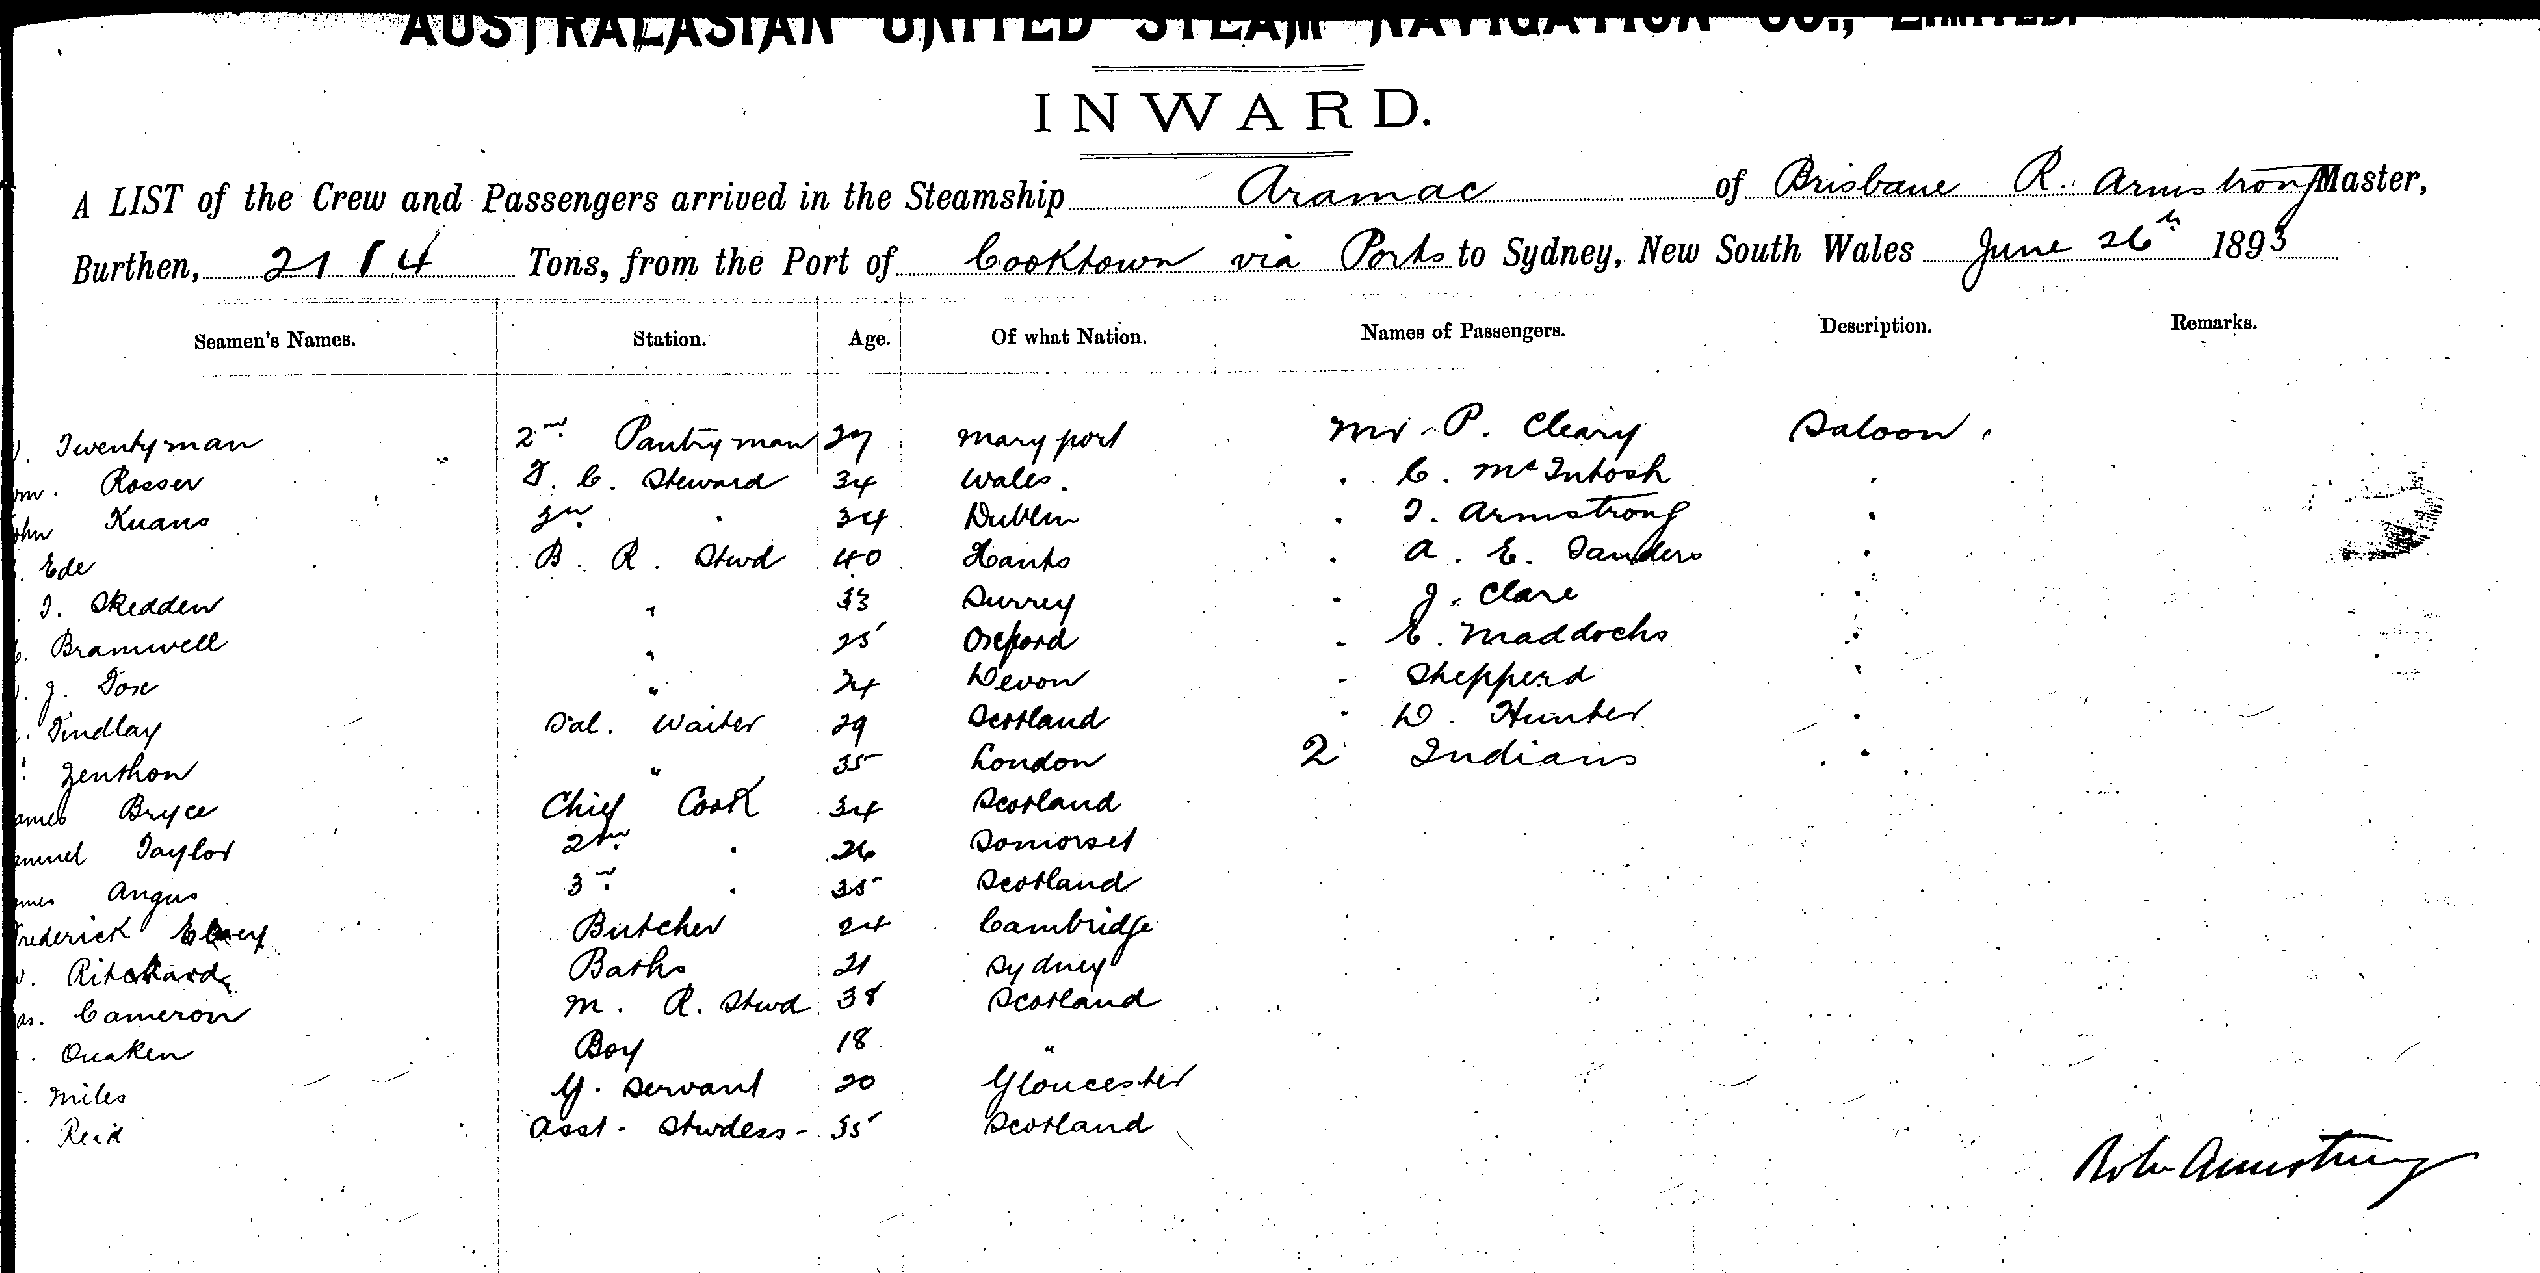 AUSTRALASIAN UNITED STEAM NAVIGATION CO., LIMITED.
INWARD.
A LIST of the Crew and Passengers arrived in the Steamship Aramac of Brisbane R. Armstrong Master,
Burthen, 2114 Tons, from the Port of Cooktown via Ports to Sydney, New South Wales June 26th 1893
Seamen's Names. Station. Age. Of what Nation. Names of Passengers. Description. Remarks.
Twentyman 2nd Pantryman 27 Maryport Mr P. Cleary Saloon
Rosser F. C. Steward 34 Wales. " C. McIntosh "
Kuans " 34 Dublin " J. Armstrong "
Ede B. R. Stwd 40 Hants " A. E. Sanders "
J. Skedden " 33 Surrey " J. Clare "
Bramwell " 25 Oxford " E. Maddocks "
J. Fox " 24 Devon " Shepperd "
Findlay Sal. Waiter 29 Scotland " D. Hunter "
Zenthon " 35 London 2 Indians "
Bryce Chief Cook 34 Scotland
Taylor 2nd " 26 Somorset
Angus 3rd " 35 Scotland
Frederick Butcher 24 Cambridge
Baths 21 Sydney
Cameron M. R. Stwd 38 Scotland
Quaken Boy 18 "
Miles G. Servant 20 Gloucester
Reid Asst. Stwdess - 35 Scotland
Robt Armstrong